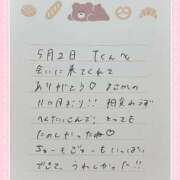 5月2日 Tくんへ
会いに来てくれて
ありがとう♡まさかの
11か月ぶり!! 相変わらず
へんたいさんで、とっても
たのしかったね♡
ちゅーもぎゅーもいっぱい
できて、うれしかった!!